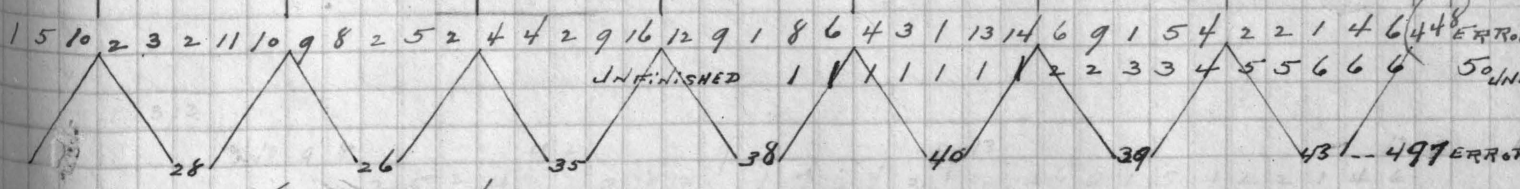 1 5 10 2 3 2 11 10 9 8 2 5 2 4 4 2 9 16 12 9 1 8 6 4 3 1 13 14 6 9 1 5 4 2 2 1 4 6 448 ERRO
UNFINISHED 1 1 1 1 1 1 1 2 2 3 3 4 5 5 6 6 6 50 UN
28 26 35 38 40 39 43 -- 497 ERRO